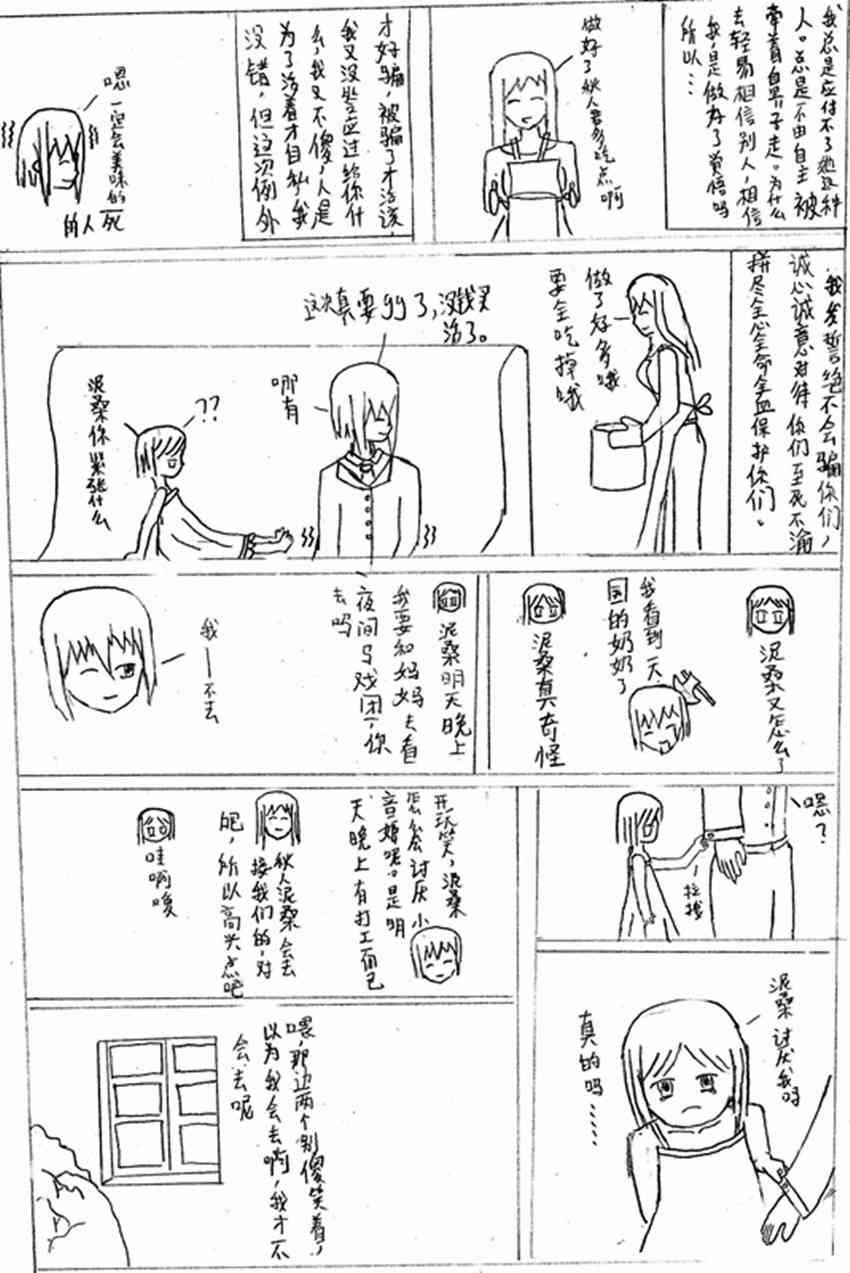 我总是应付不了她这种
人。总是不由自主被
牵着鼻子走。为什么
去轻易相信别人,相信
我,是做好了觉悟吗
所以...
做好了
秋人要多吃
点啊
才好骗,被骗了才活该,
我又没答应过给你什
么,我又不傻,人是
为了活着才自私,我
没错,但这次例外
嗯一定会美味的
死
的人
我发誓绝不会骗你们,
诚心诚意对待你们至死不渝
拼尽全心全命全血保护你们。
做了好多哦
要全吃掉哦
这次真要gg了,没钱买
治了。
哪有
??
泥桑你紧张什么
泥桑又怎么了
我看到天
国的奶奶了
泥桑真奇怪
泥桑明天晚上
我要和妈妈去看
夜间马戏团,你
去吗
我—不去
嗯?
拉拽
开玩笑,泥桑
怎么会讨厌小
音姬呢。是明
天晚上有打工而已
秋人泥桑会去
接我们的,对
吧,所以高兴点吧
哇啊嗄
泥桑讨厌我吗
真的吗......
喂,那边两个别傻笑着,
以为我会去啊,我才不
会去呢